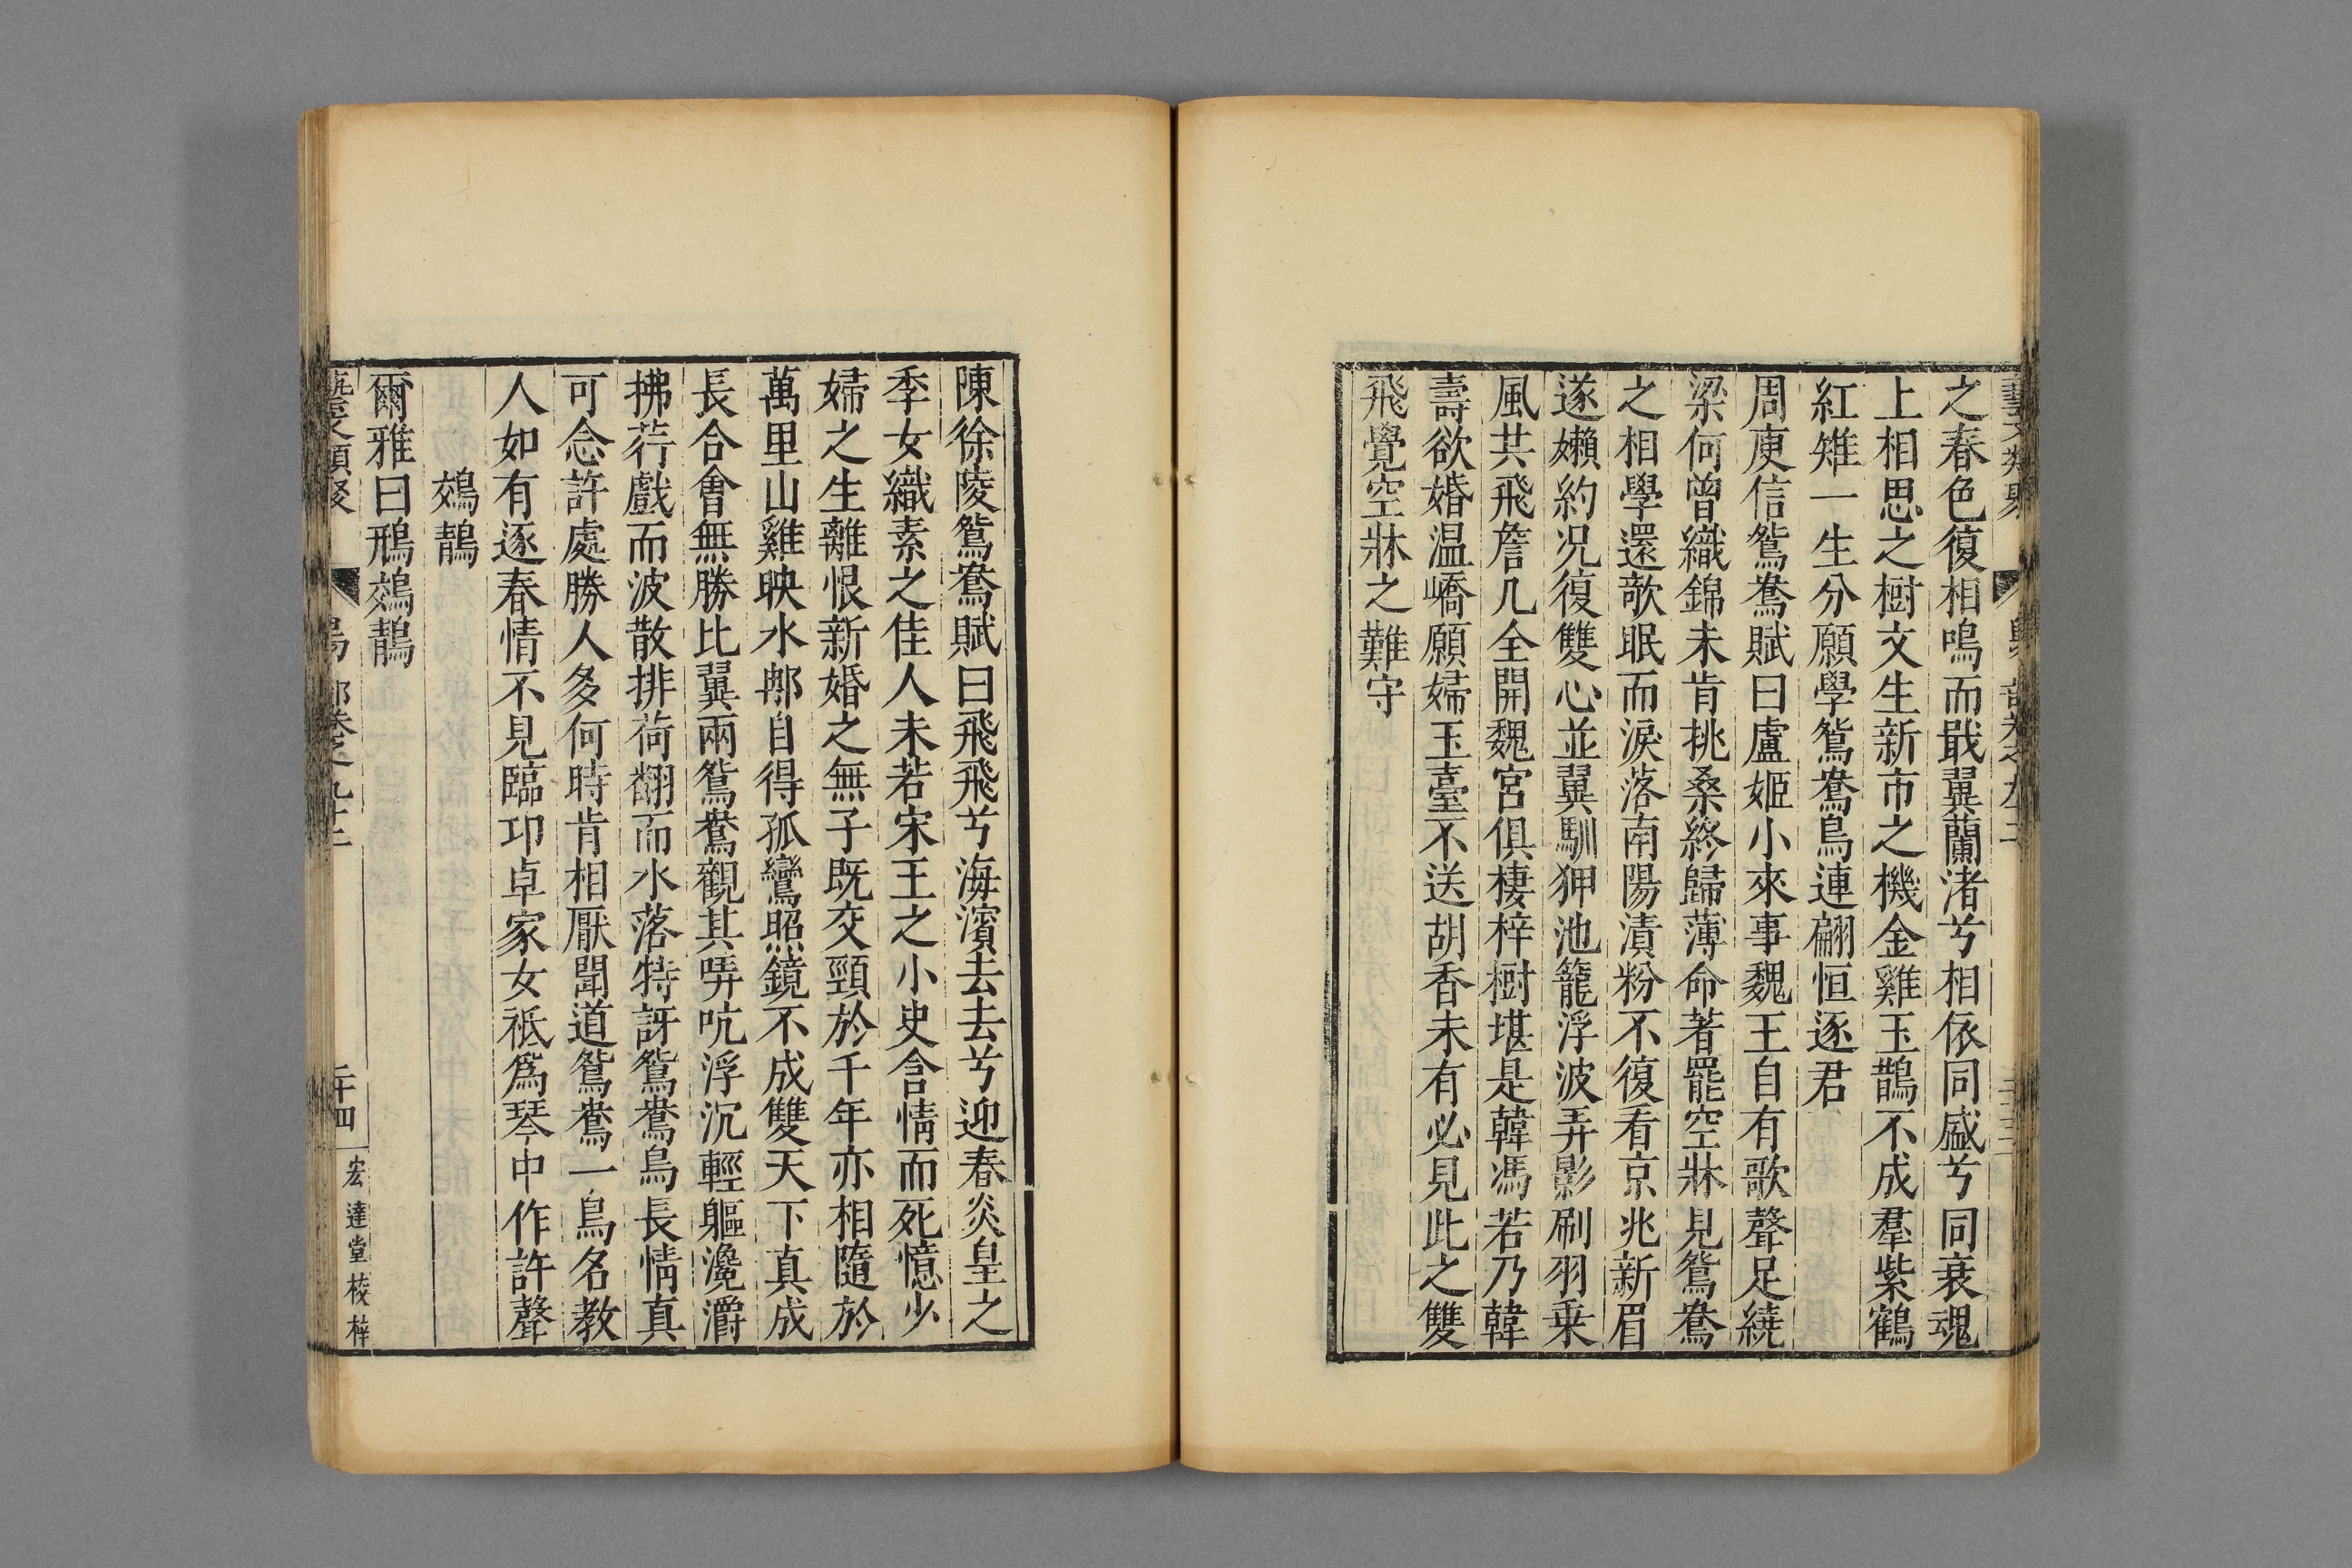 之春色復相鳴而戢翼蘭渚兮相依同盛兮同衰魂
上相思之樹文生新市之機金雞玉鵲不成羣紫鶴
紅雉一生分願學鴛鴦鳥連翩恒逐君
周庾信鴛鴦賦曰盧姬小來事魏王自有歌聲足繞
梁何曾織錦未肯挑桑終歸薄命著罷空牀見鴛鴦
之相學還欹眠而淚落南陽漬粉不復看京兆新眉
遂嬾約况復雙心並翼馴狎池籠浮波弄影刷羽乗
風共飛詹几全開魏宮俱棲梓樹堪是韓馮若乃韓
壽欲婚温嶠願婦玉臺不送胡香未有必見此之雙
飛覺空牀之難守
陳徐陵鴛鴦賦曰飛飛兮海濱去去兮迎春炎皇之
季女織素之佳人未若宋王之小史含情而死憶少
婦之生離恨新婚之無子既交頸於千年亦相隨於
萬里山雞映水那自得孤鸞照鏡不成雙天下真成
長合會無勝比翼兩鴛鴦觀其哢吭浮沉輕軀瀺灂
拂荇戲而波散排荷翻而水落特訝鴛鴦鳥長情真
可念許處勝人多何時肯相厭聞道鴛鴦一鳥名教
人如有逐春情不見臨邛卓家女祗爲琴中作許聲
鵁鶄
爾雅曰鳽鵁鶄
藝文類聚 鳥部卷之九十二 二十四 宏達堂校梓